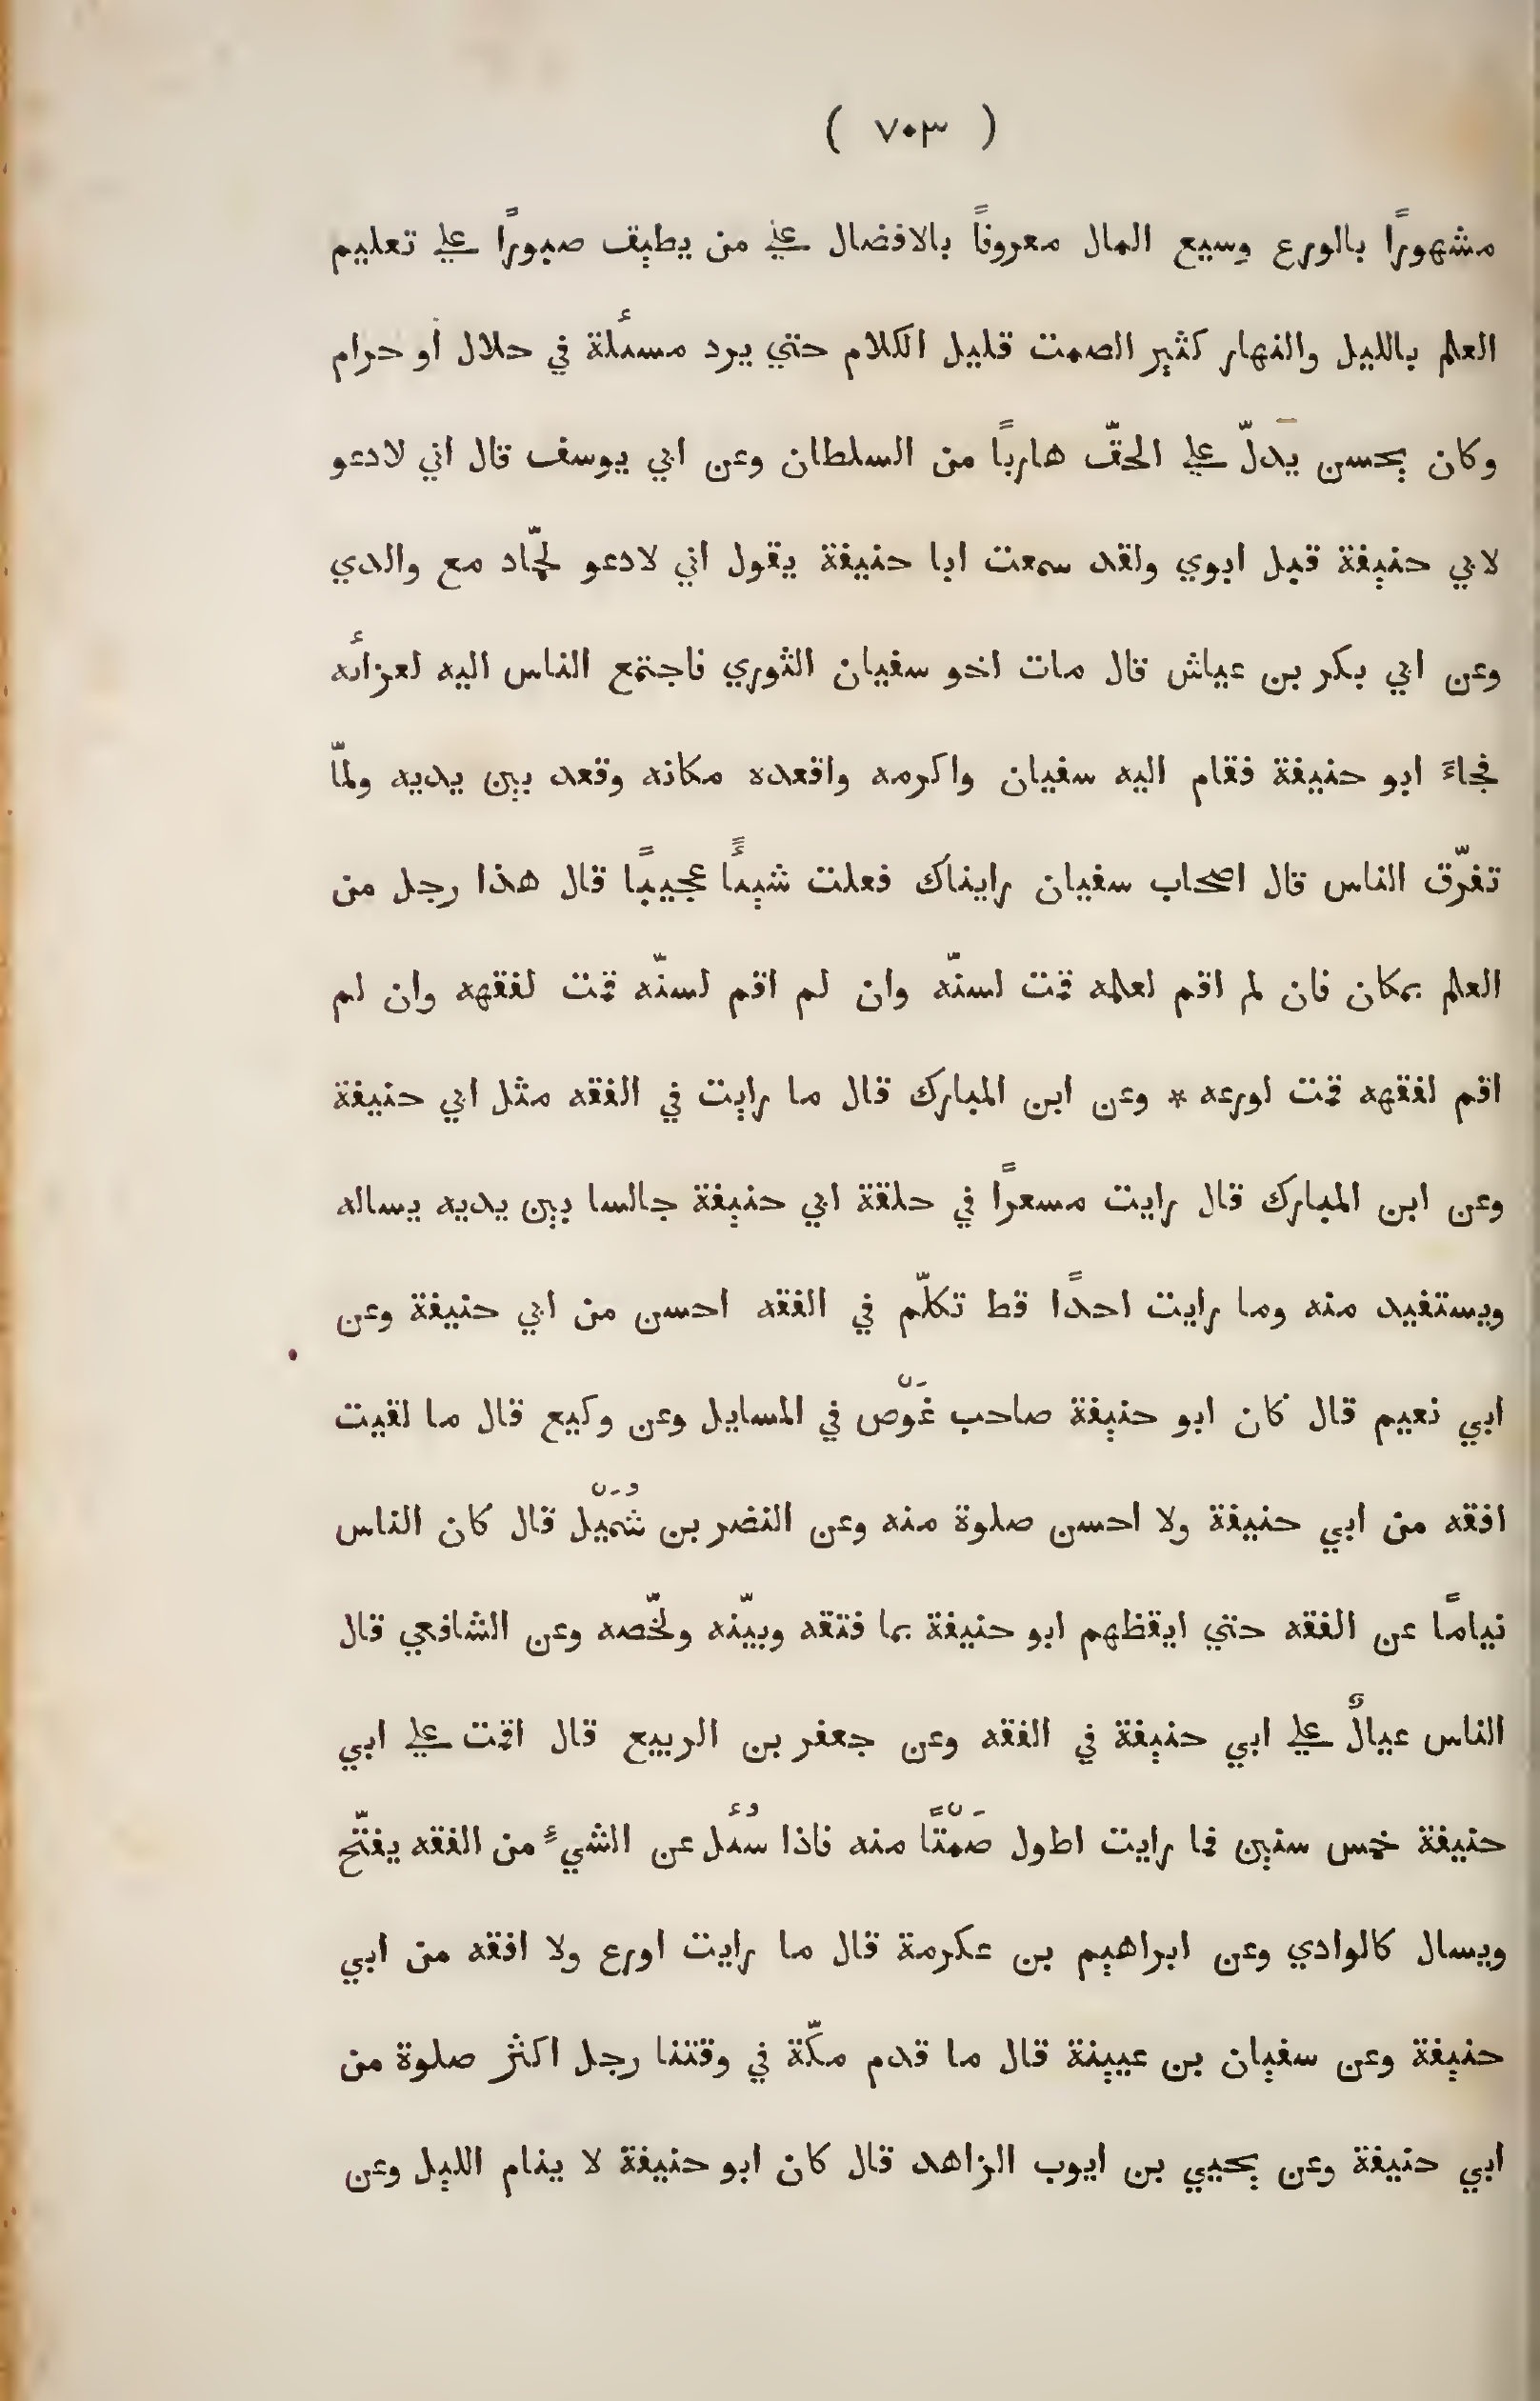 ( ٧٠٣ )
مشهورًا بالورع وسيع المال معروفاً بالافضال علي من يطيف صبورًا علي تعليم
العلم بالليل والنهار كثير الصمت قليل الكلام حتي يرد مسئلة في حلال او حرام
وكان يحسن يدلّ علي الحقّ هارباً من السلطان وعن ابي يوسف قال اني لادعو
لابي حنيفة قبل ابوي ولقد سمعت ابا حنيفة يقول اني لادعو لحمّاد مع والدي
وعن ابي بكر بن عياش قال مات اخو سفيان الثوري فاجتمع الناس اليه لعزائه
فجاءَ ابو حنيفة فقام اليه سفيان واكرمه واقعده مكانه وقعد بين يديه ولمّا
تفرّق الناس قال اصحاب سفيان رايناك فعلت شيئًا عجيبًا قال هذا رجل من
العلم بمكان فان لم اقم لعلمه قمت لسنّه وان لم اقم لسنّه قمت لفقهه وان لم
اقم لفقهه قمت لورعه * وعن ابن المبارك قال ما رايت في الفقه مثل ابي حنيفة
وعن ابن المبارك قال رايت مسعرًا في حلقة ابي حنيفة جالسا بين يديه يساله
ويستفيد منه وما رايت احدًا قط تكلّم في الفقه احسن من ابي حنيفة وعن
ابي نعيم قال كان ابو حنيفة صاحب غَوْص في المسايل وعن وكيع قال ما لقيت
افقه من ابي حنيفة ولا احسن صلوة منه وعن النضر بن شُمَيْل قال كان الناس
نيامًا عن الفقه حتي ايقظهم ابو حنيفة بما فتقه وبيّنه ولخّصه وعن الشافعي قال
الناس عيالٌ علي ابي حنيفة في الفقه وعن جعفر بن الربيع قال اقمت علي ابي
حنيفة خمس سنين فما رايت اطول صَمْتًا منه فاذا سُئل عن الشيءِ من الفقه يفتّح
ويسال كالوادي وعن ابراهيم بن عكرمة قال ما رايت اورع ولا افقه من ابي
حنيفة وعن سفيان بن عيينة قال ما قدم مكّة في وقتنا رجل اكثر صلوة من
ابي حنيفة وعن يحيي بن ايوب الزاهد قال كان ابو حنيفة لا ينام الليل وعن